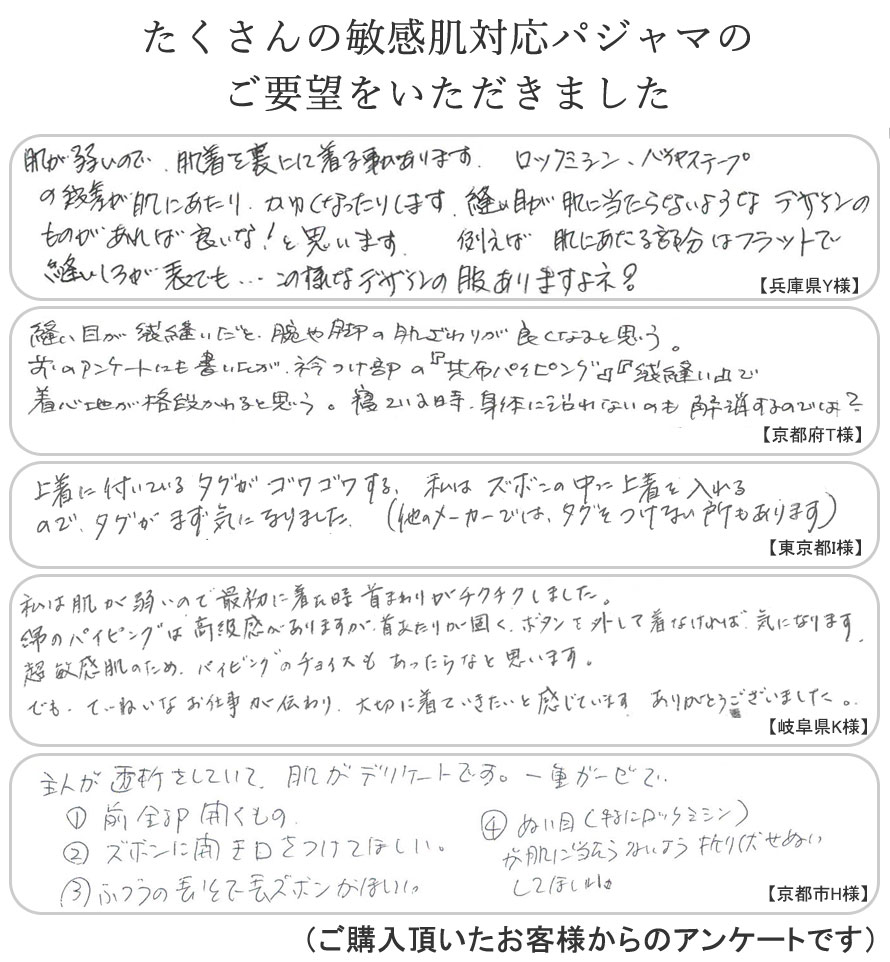 たくさんの敏感肌対応パジャマの
ご要望をいただきました
肌が弱いので、肌着を裏にして着る事があります。 ロックミシン、バイヤステープ
の段差が肌にあたり、かゆくなったりします。縫い目が肌に当たらないようなデザインの
ものがあれば良いな!と思います。 例えば 肌にあたる部分はフラットで
縫いしろが表でも…この様なデザインの服ありますよネ?
【兵庫県Y様】
縫い目が袋縫いだと、腕や脚の肌ざわりが良くなると思う。
前のアンケートにも書いたが、衿つけ部の『共布パイピング』『袋縫い』で
着心地が格段かわると思う。寝ている時、身体に沿わないのも解消するのでは?
【京都府T様】
上着に付いているタグがゴワゴワする。 私はズボンの中に上着を入れる
ので、タグがまず気になりました。 (他のメーカーでは、タグをつけない所もあります)
【東京都I様】
私は肌が弱いので最初に着た時首まわりがチクチクしました。
綿のパイピングは高級感がありますが、首あたりが固く、ボタンを外して着なければ気になります。
超敏感肌のため、パイピングのチョイスもあったらなと思います。
でも、ていねいなお仕事が伝わり、大切に着ていきたいと感じています ありがとうございました。
【岐阜県K様】
主人が透析をしていて、肌がデリケートです。一重ガーゼで、
① 前全部開くもの
② ズボンに開き口をつけてほしい。
③ ふつうの長そで長ズボンがほしい。
④ ぬい目(特にロックミシン)
が肌に当たらないよう折り伏せぬい
してほしい
【京都市H様】
(ご購入頂いたお客様からのアンケートです)